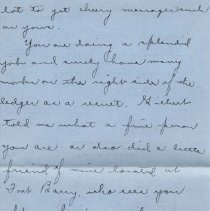 lot to get cheery messages such
as yours.
You are doing a splendid
job and surely have many
marks on the right side of the
ledger as a result. Gilbert
told me what a fine person
you are as also did a little
friend of mine located at
Fort Barry, who sees you